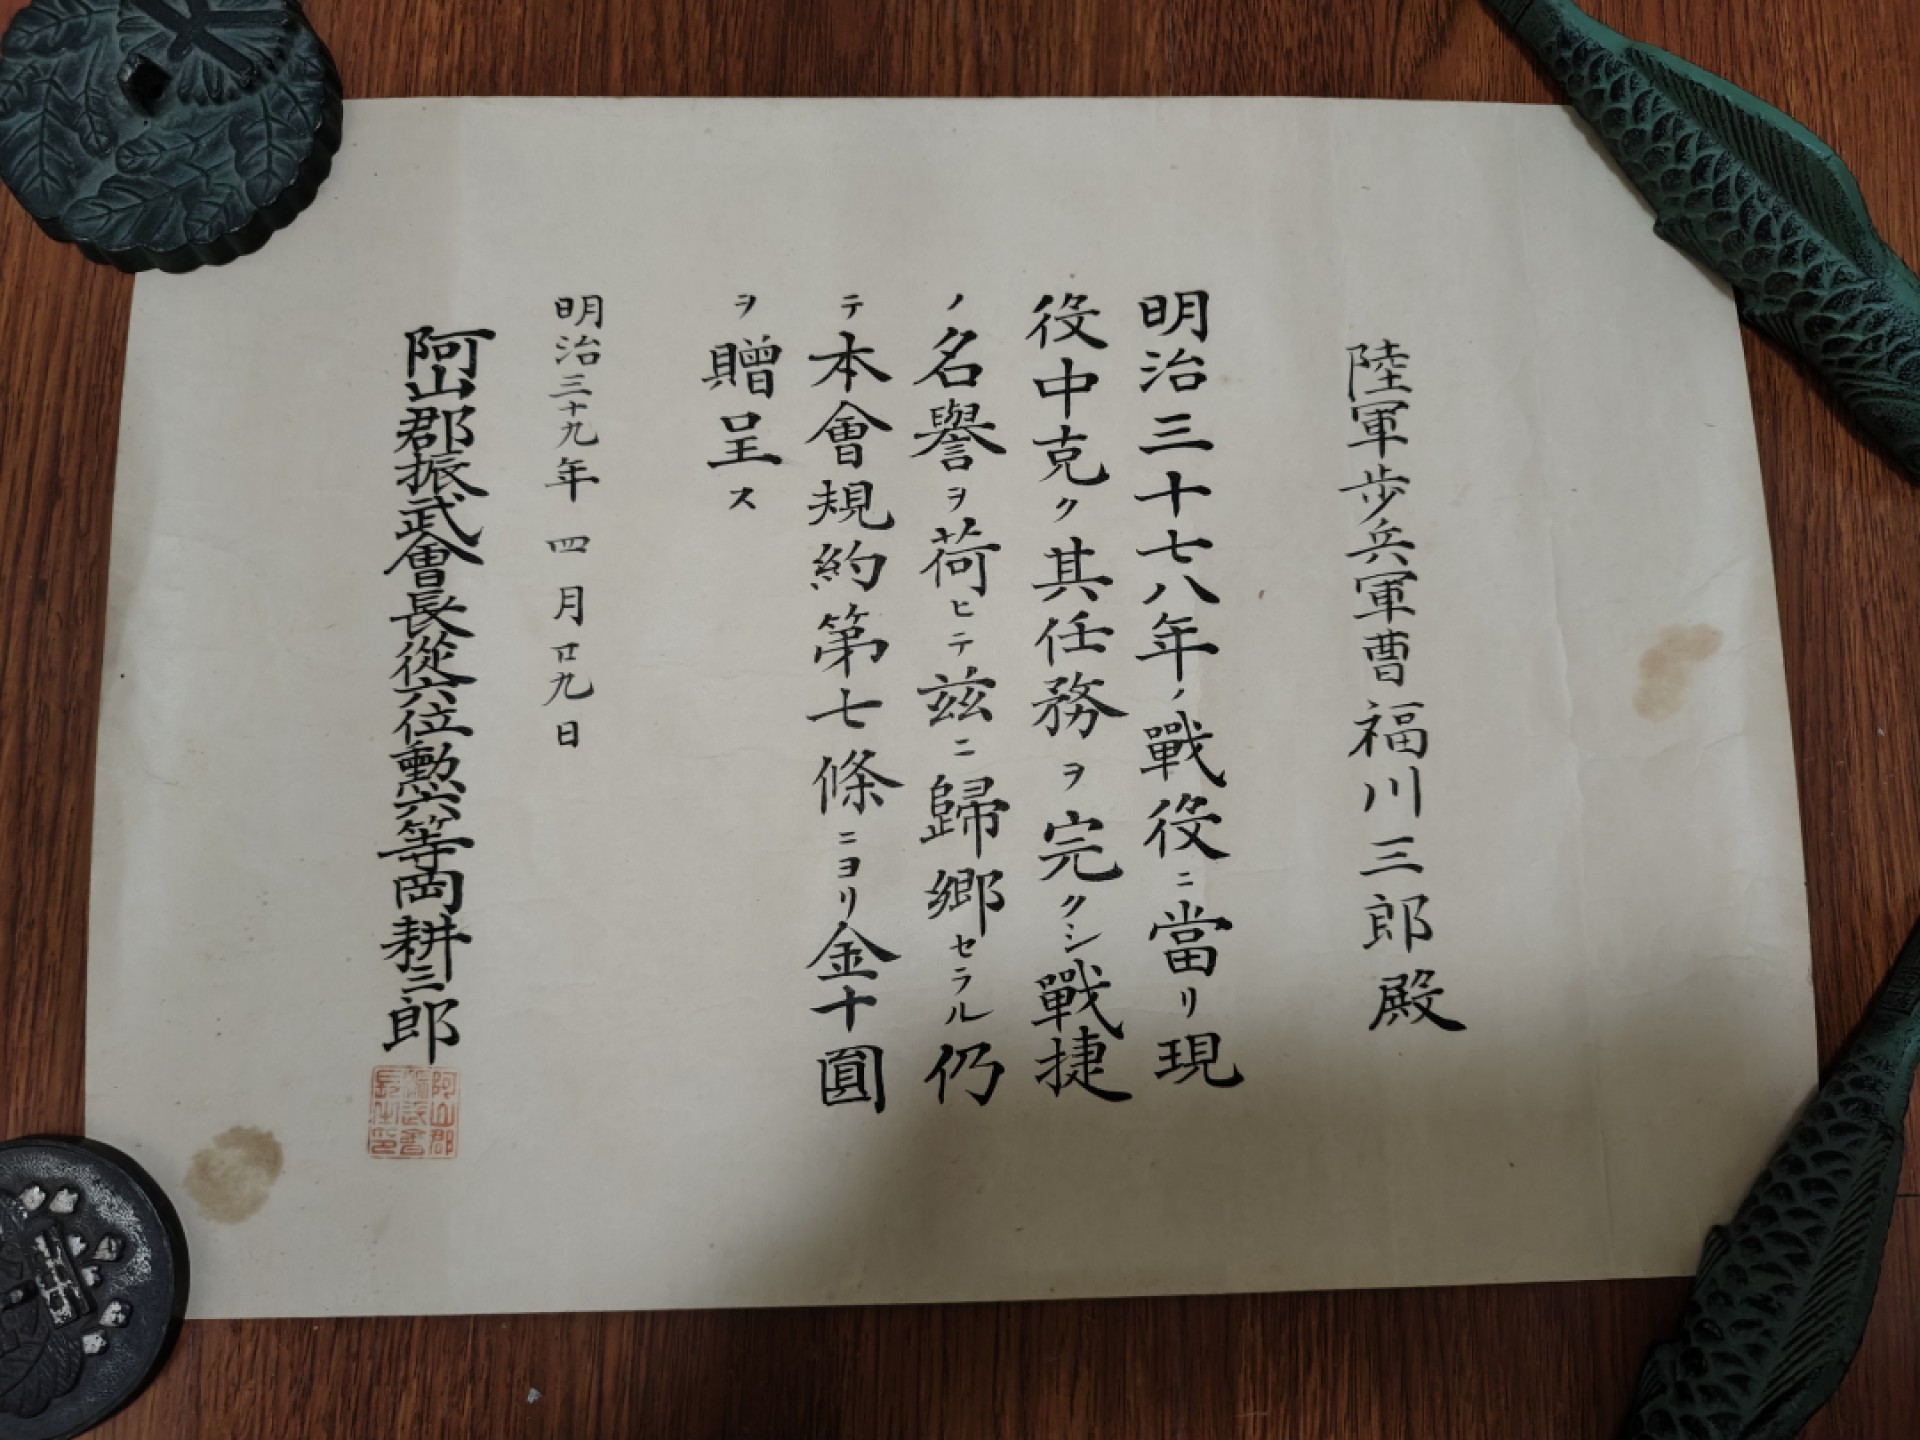 陸軍歩兵軍曹福川三郎殿
明治三十七八年ノ戰役ニ當リ現
役中克ク其任務ヲ完クシ戰捷
ノ名譽ヲ荷ヒテ茲ニ歸郷セラル仍
テ本會規約第七條ニヨリ金十圓
ヲ贈呈ス
明治三十九年四月廿九日
阿山郡振武會長從六位勲六等岡耕三郎
阿山郡
振武會
長之印